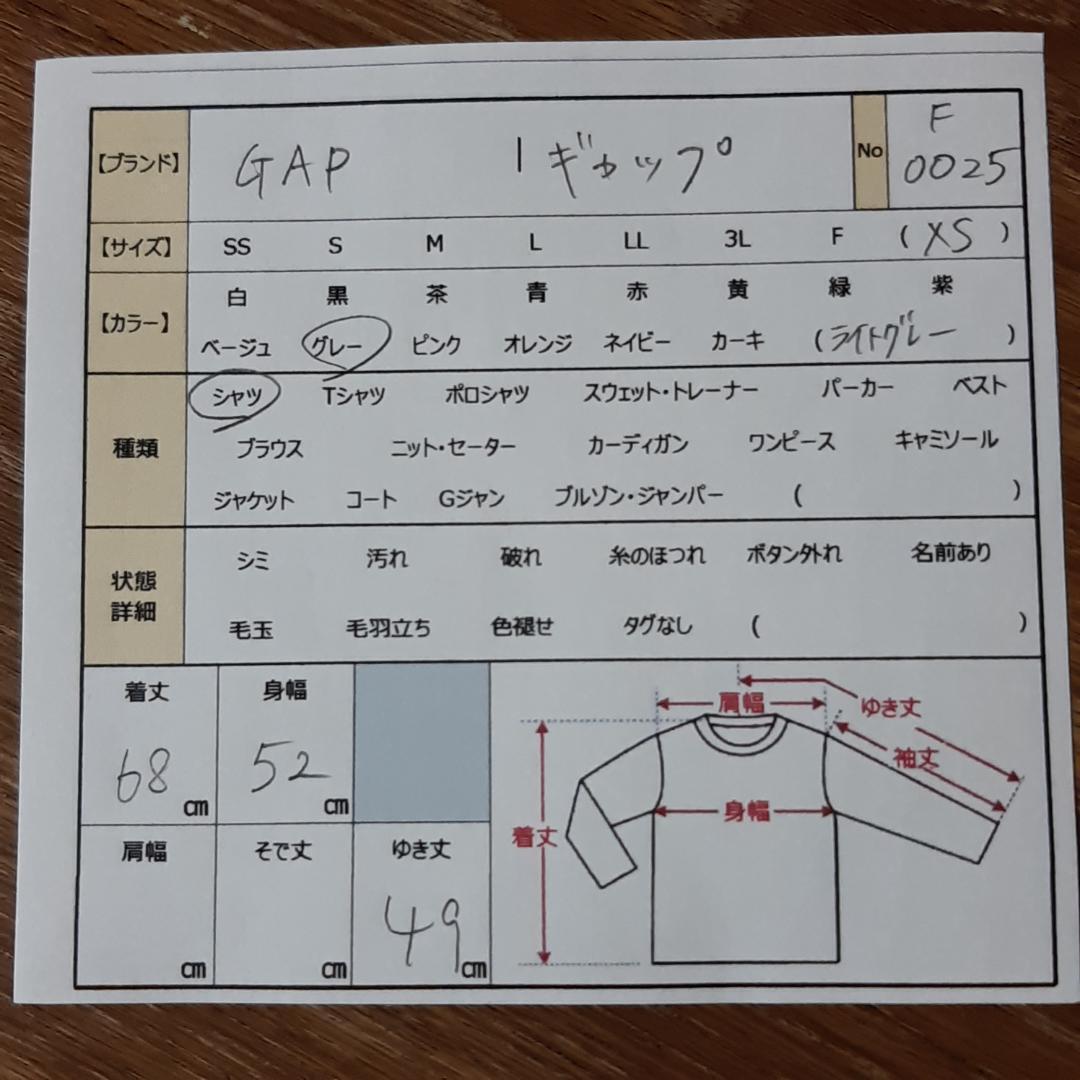 【ブランド】 GAP / ギャップ No F 0025
【サイズ】 SS S M L LL 3L F (XS)
【カラー】 白 黒 茶 青 赤 黄 緑 紫
ベージュ グレー ピンク オレンジ ネイビー カーキ (ライトグレー)
種類 シャツ Tシャツ ポロシャツ スウェット・トレーナー パーカー ベスト
ブラウス ニット・セーター カーディガン ワンピース キャミソール
ジャケット コート Gジャン ブルゾン・ジャンパー ( )
状態詳細 シミ 汚れ 破れ 糸のほつれ ボタン外れ 名前あり
毛玉 毛羽立ち 色褪せ タグなし ( )
着丈 68 cm
身幅 52 cm
肩幅 cm
そで丈 cm
ゆき丈 49 cm
肩幅
ゆき丈
袖丈
身幅
着丈